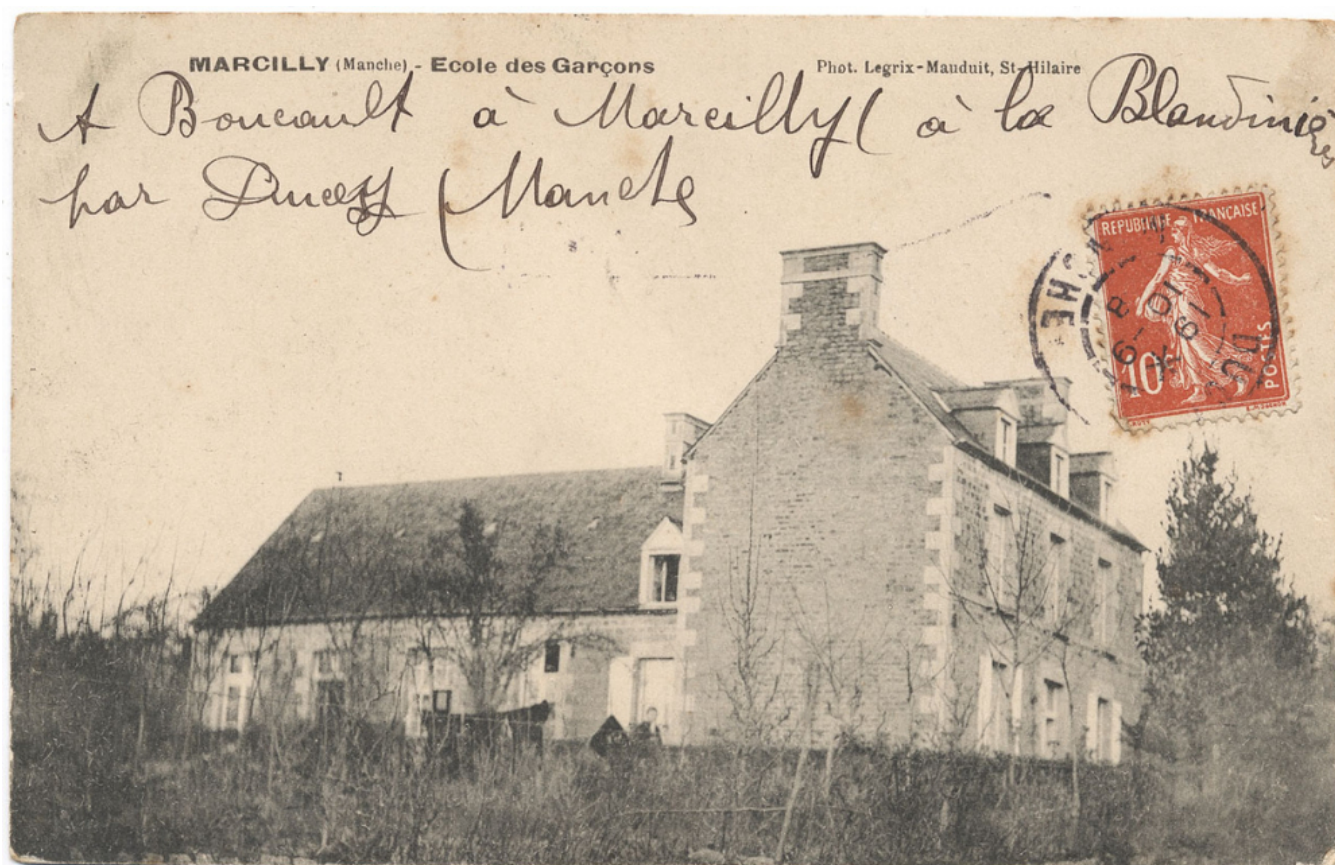 MARCILLY (Manche) - Ecole des Garçons
Phot. Legrix-Mauduit, St-Hilaire
A Boucault à Marcilly ( à la Blandinière
par Ducey ( Manche
REPUBLIQUE FRANÇAISE
10c
POSTES